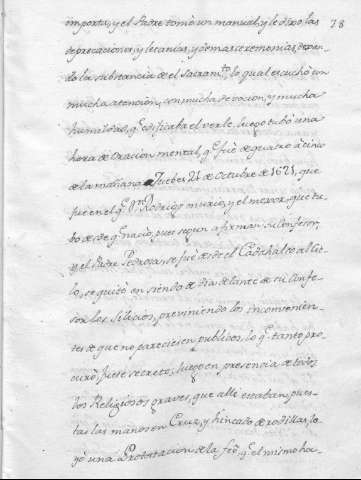 importa, y el Padre tomò un manual, y le dixo las 78
deprecaciones, y letanias, y demas ceremonias dexan-
do la substancia de el Sacram.to lo qual escuchò con
mucha atencion, con mucha devocion, y mucha
humildad, q.e edificaba el verle, luego tubo una
hora de Oracion mental, q.e fuè de quatro à cinco
de la mañana Jueves 21 de Octubre de 1621, que
fue en el q.e Dn. Rodrigo muriò, y el mexor, que tu-
bo desde q.e naciò, pues segun afirman su Confesor,
y el Padre Pedrosa, se fuè desde el Cadahalso al Cie-
lo, se quitò en siendo de dia delante de su Confe-
sor los Silicios, previniendo los inconvenien-
tes de que no pareciesen publicos, lo q.e tanto pro-
curò fuese secreto, luego en presencia de todos
los Religiosos graves, que alli estaban, pues-
tas las manos en Cruz, y hincado de rodillas, le-
yò una Protestacion de la feè, q.e el mismo ha-